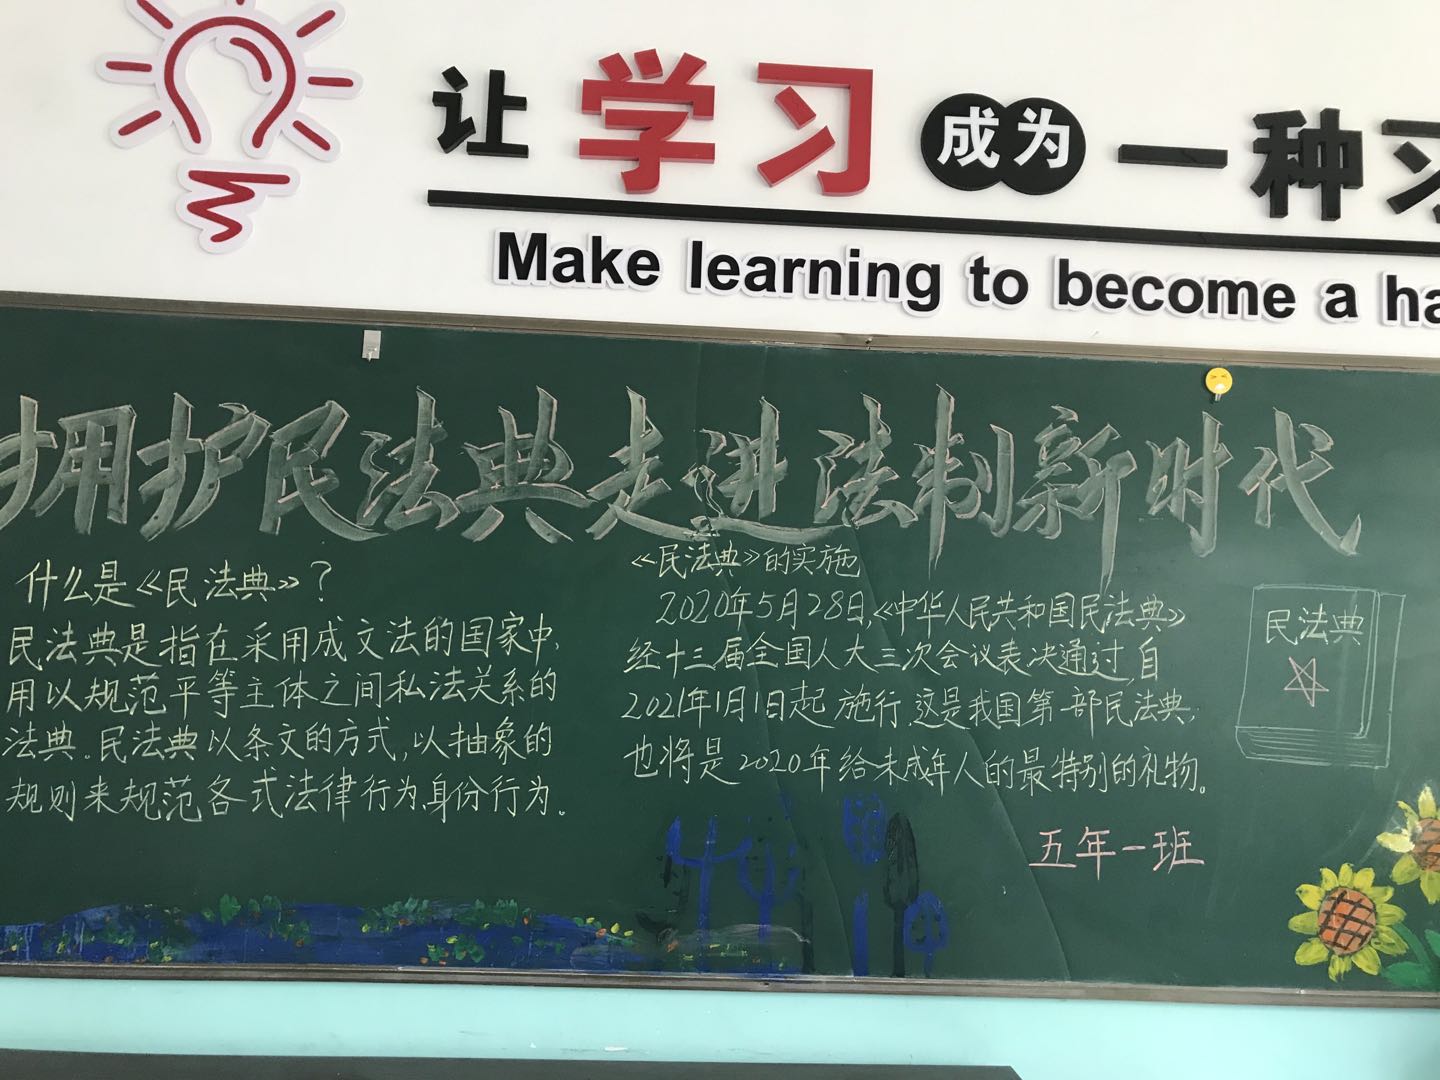 让学习成为一种习
Make learning to become a ha
拥护民法典走进法制新时代
什么是《民法典》?
民法典是指在采用成文法的国家中,
用以规范平等主体之间私法关系的
法典.民法典以条文的方式,以抽象的
规则来规范各式法律行为,身份行为。
《民法典》的实施
2020年5月28日,《中华人民共和国民法典》
经十三届全国人大三次会议表决通过,自
2021年1月1日起施行.这是我国第一部民法典,
也将是2020年给未成年人的最特别的礼物。
五年一班
民法典